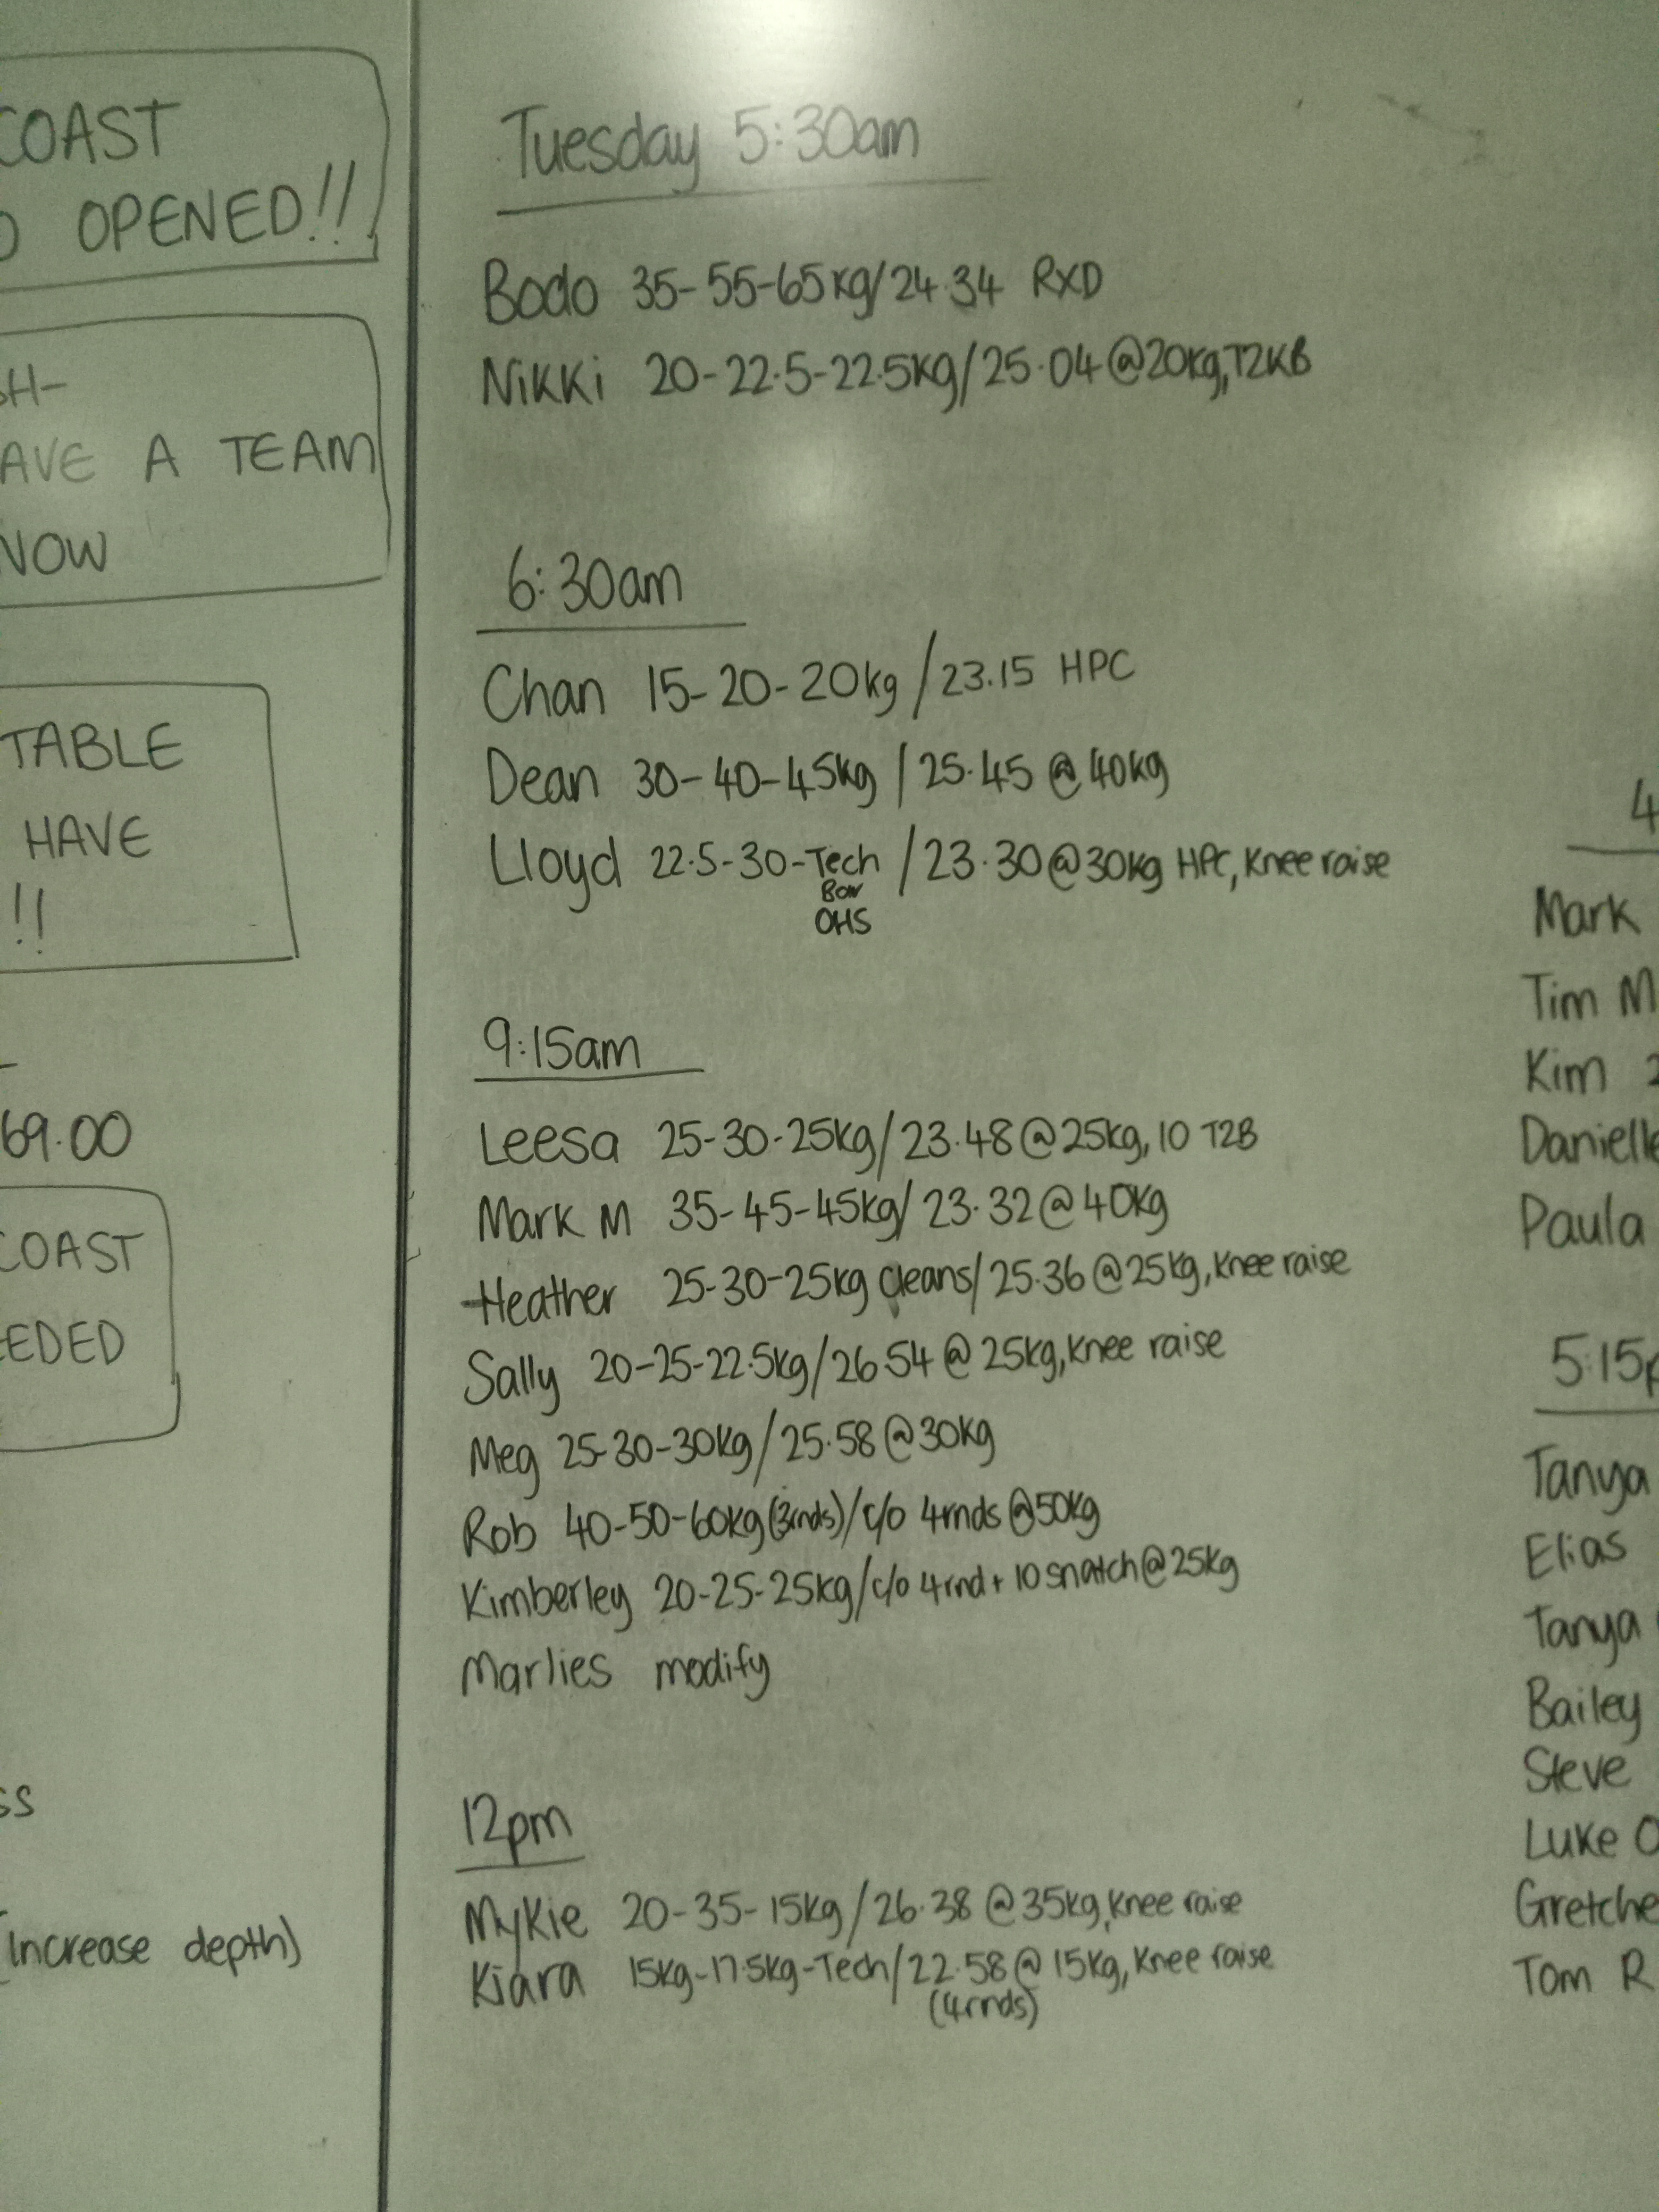 COAST
OPENED!!
AVE A TEAM
NOW
TABLE
HAVE
!!
69.00
COAST
EEDED
(Increase depth)
Tuesday 5:30am
Bodo 35-55-65kg/24.34 RXD
Nikki 20-22.5-22.5kg/25.04@20kg,T2KB
6:30am
Chan 15-20-20kg/23.15 HPC
Dean 30-40-45kg/25.45@40kg
Lloyd 22.5-30-Tech/23.30@30kg HPC, Knee raise
Bar
OHS
9:15am
Leesa 25-30-25kg/23.48@25kg, 10 T2B
Mark M 35-45-45kg/23.32@40kg
Heather 25-30-25kg cleans/25.36@25kg, Knee raise
Sally 20-25-22.5kg/26.54@25kg, Knee raise
Meg 25-30-30kg/25.58@30kg
Rob 40-50-60kg(3rnds)/c/o 4rnds@50kg
Kimberley 20-25-25kg/c/o 4rnd+10 snatch@25kg
Marlies modify
12pm
Mykie 20-35-15kg/26.38@35kg, Knee raise
Kiara 15kg-17.5kg-Tech/22.58@15kg, Knee raise
(4rnds)
4
Mark
Tim M
Kim 2
Danielle
Paula
5:15p
Tanya
Elias
Tanya
Bailey
Steve
Luke O
Gretche
Tom R